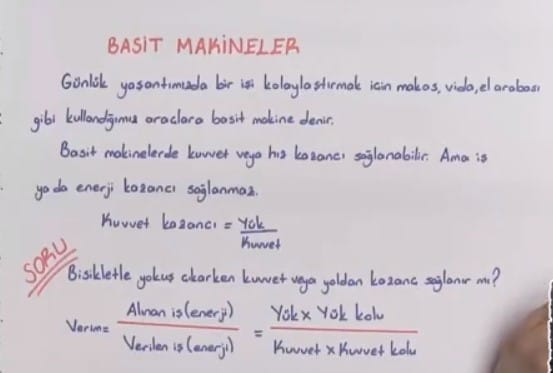 BASİT MAKİNELER
Günlük yaşantımızda bir işi kolaylaştırmak için makas, vida, el arabası
gibi kullandığımız araçlara basit makine denir.
Basit makinelerde kuvvet veya hız kazancı sağlanabilir. Ama iş
ya da enerji kazancı sağlanmaz.
Kuvvet kazancı = Yük / Kuvvet
SORU
Bisikletle yokuş çıkarken kuvvet veya yoldan kazanç sağlanır mı?
Verim = Alınan iş (enerji) / Verilen iş (enerji) = Yük x Yük kolu / Kuvvet x Kuvvet kolu